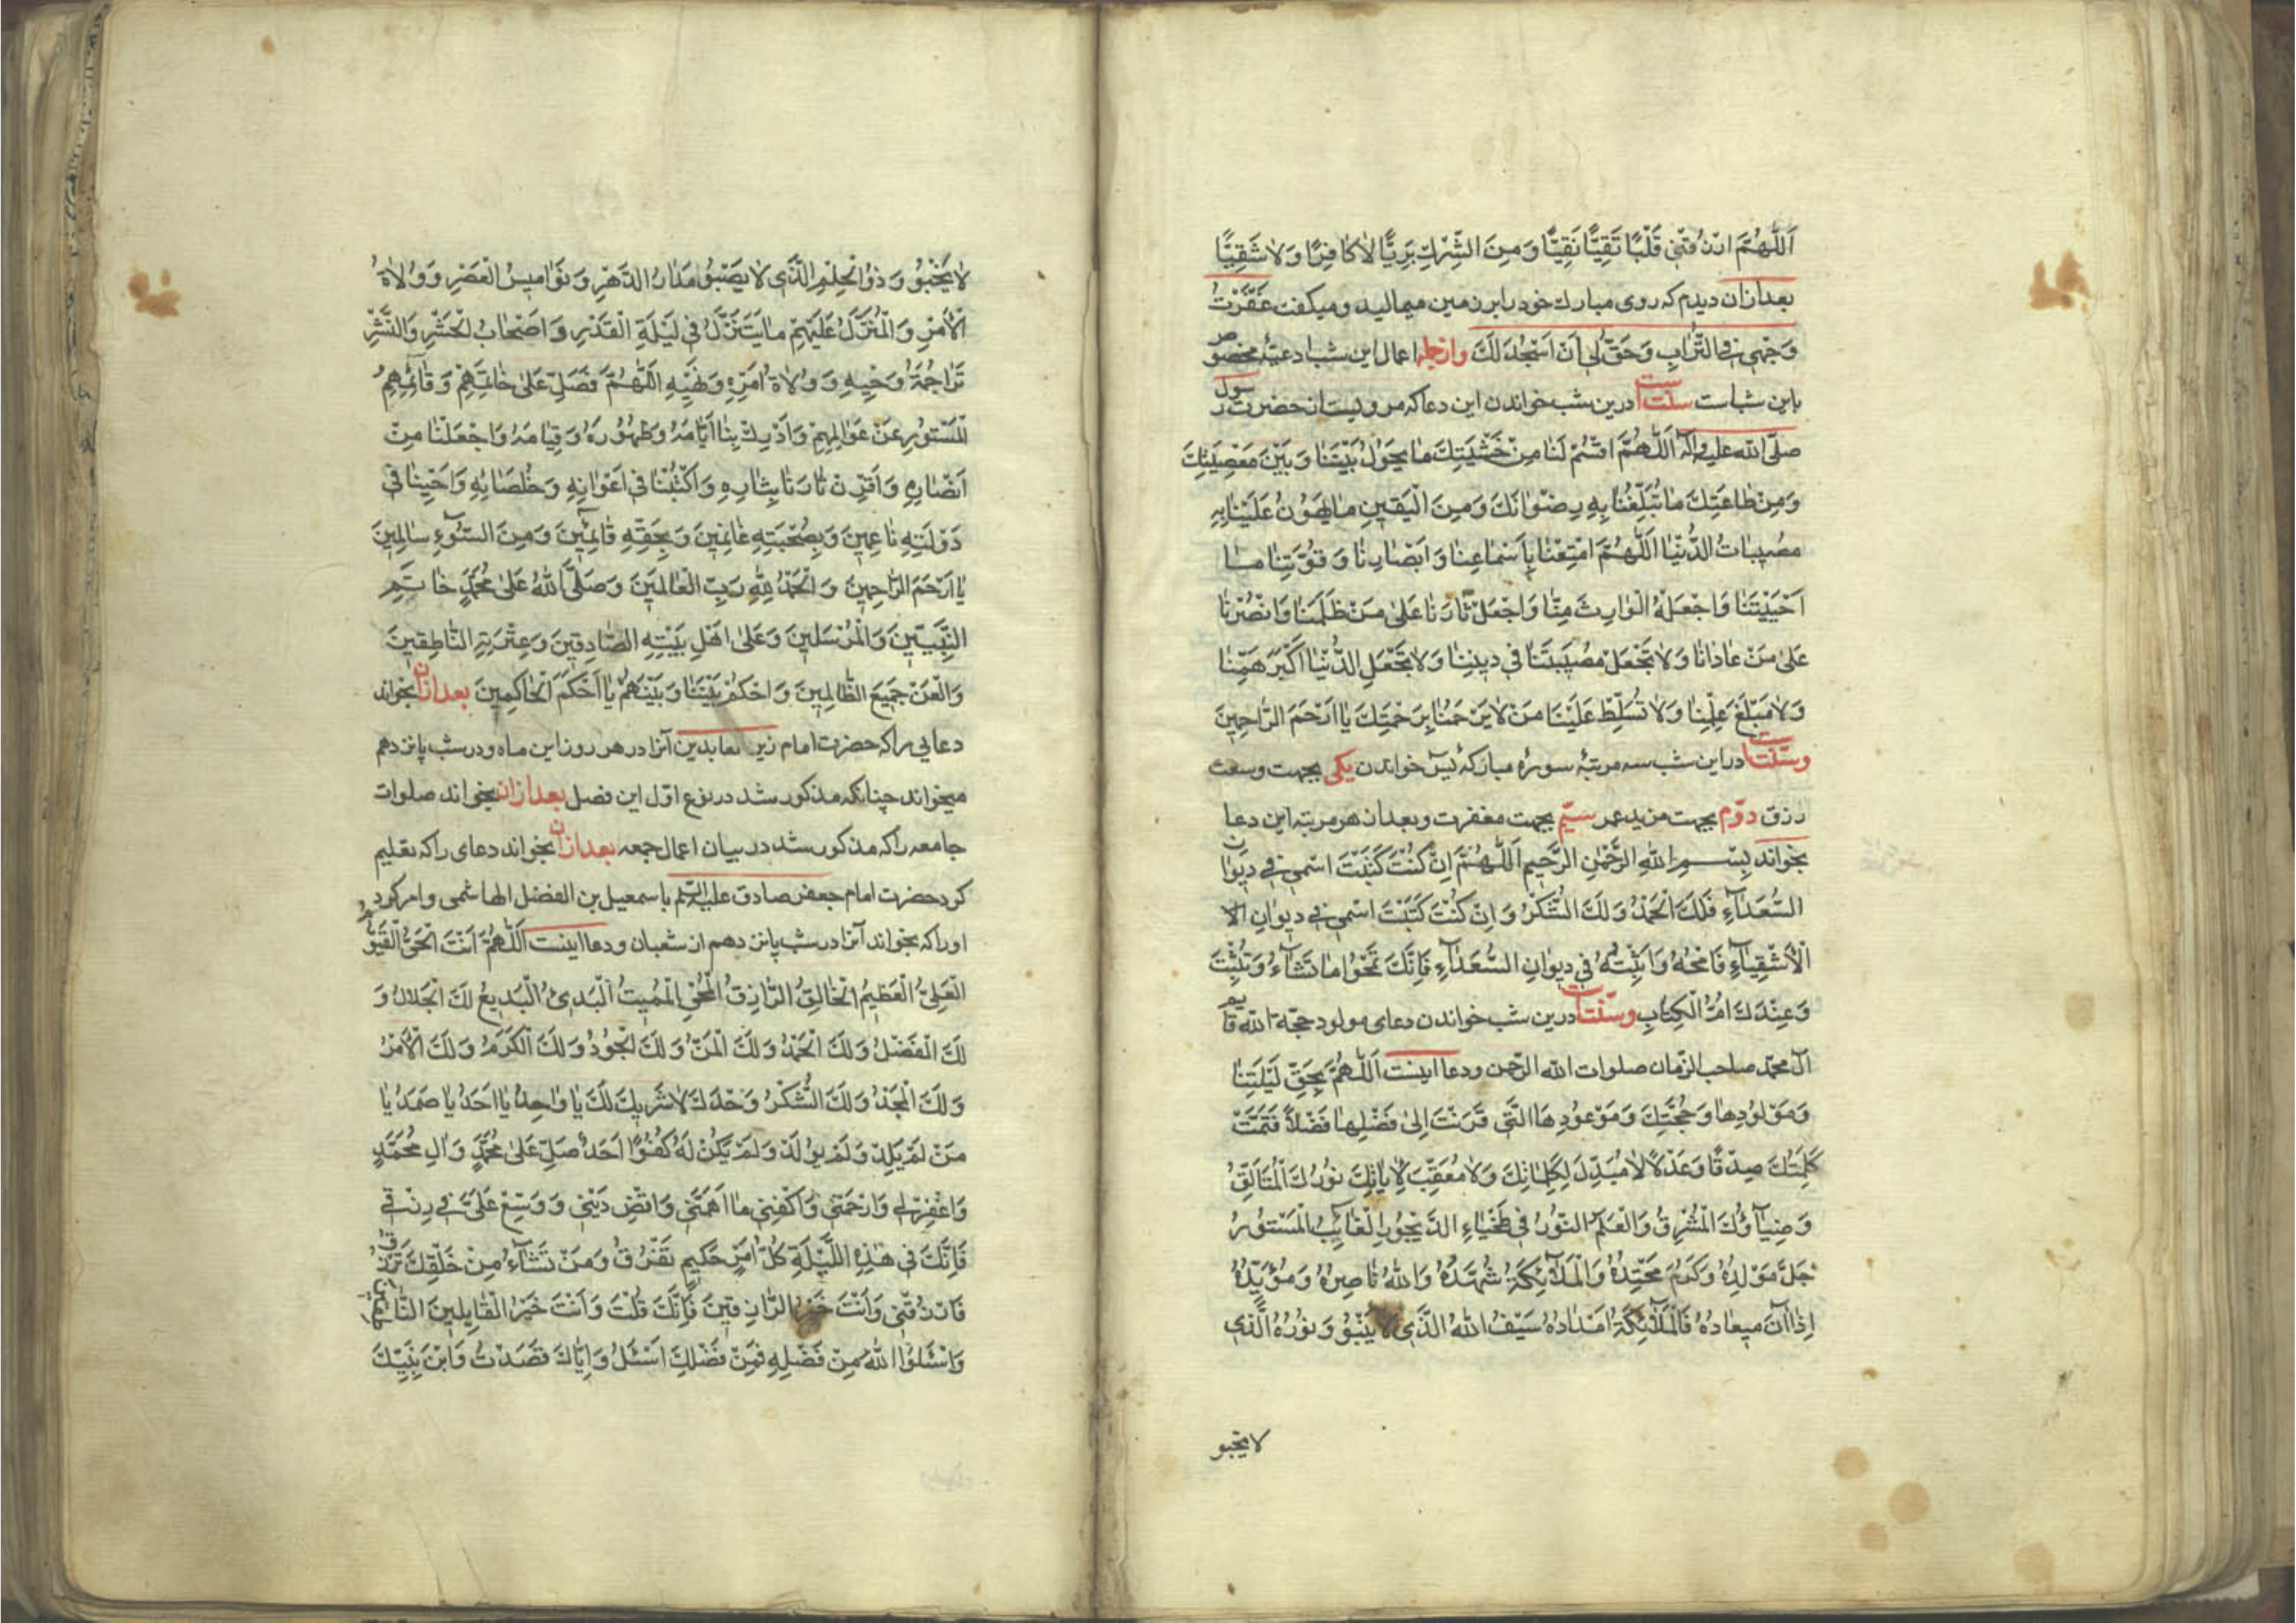 اَللّٰهُمَّ ارْزُقْنِی قَلْبًا تَقِیًّا نَقِیًّا وَمِنَ الشِّرْكِ بَرِیًّا لاٰ كٰافِرًا وَلاٰ شَقِیًّا
بعد ازان دیدم که روی مبارك خود را بر زمین میمالید و میکفت عَفَّرْتُ
وَجْهِی فِی التُّرٰابِ وَحَقَّ لِی اَنْ اَسْجُدَ لَكَ وازجمله اعمال این شب ادعیهٔ مخصوصه
باین شب است سنّت است درین شب خواندن این دعا که مرویست از حضرت رسول
صلّی الله علیه وآله اَللّٰهُمَّ اقْسِمْ لَنٰا مِنْ خَشْیَتِكَ مٰا یَحُولُ بَیْنَنٰا وَبَیْنَ مَعْصِیَتِكَ
وَمِنْ طٰاعَتِكَ مٰا تُبَلِّغُنٰا بِهِ رِضْوٰانَكَ وَمِنَ الْیَقِینِ مٰا یَهُونُ عَلَیْنٰا بِهِ
مُصِیبٰاتُ الدُّنْیٰا اَللّٰهُمَّ امْتِعْنٰا بِاَسْمٰاعِنٰا وَاَبْصٰارِنٰا وَقُوَّتِنٰا مٰا
اَحْیَیْتَنٰا وَاجْعَلْهُ الْوٰارِثَ مِنّٰا وَاجْعَلْ ثٰارَنٰا عَلیٰ مَنْ ظَلَمَنٰا وَانْصُرْنٰا
عَلیٰ مَنْ عٰادٰانٰا وَلاٰ تَجْعَلْ مُصِیبَتَنٰا فِی دِینِنٰا وَلاٰ تَجْعَلِ الدُّنْیٰا اَكْبَرَ هَمِّنٰا
وَلاٰ مَبْلَغَ عِلْمِنٰا وَلاٰ تُسَلِّطْ عَلَیْنٰا مَنْ لاٰ یَرْحَمُنٰا بِرَحْمَتِكَ یٰا اَرْحَمَ الرّٰاحِمِینَ
وسنّت است در این شب سه مرتبهٔ سورهٔ مبارکهٔ یٰسٓ خواندن یکی بجهت وسعت
رزق دوّم بجهت مزید عمر سیّم بجهت مغفرت وبعد از هر مرتبه این دعا
بخواند بِسْمِ اللهِ الرَّحْمٰنِ الرَّحِیمِ اَللّٰهُمَّ اِنْ كُنْتَ كَتَبْتَ اسْمِی فِی دِیوٰانِ
السُّعَدٰآءِ فَلَكَ الْحَمْدُ وَلَكَ الشُّكْرُ وَاِنْ كُنْتَ كَتَبْتَ اسْمِی فِی دِیوٰانِ الا
الْاَشْقِیٰآءِ فَامْحُهُ وَاَثْبِتْهُ فِی دِیوٰانِ السُّعَدٰآءِ فَاِنَّكَ تَمْحُوا مٰا تَشٰآءُ وَتُثْبِتُ
وَعِنْدَكَ اُمُّ الْكِتٰابِ وسنّت است درین شب خواندن دعای مولود حجّة الله قایم
آل محمّد صاحب الزّمان صلوات الله الرّحمن ودعا اینست اَللّٰهُمَّ بِحَقِّ لَیْلَتِنٰا
وَمَوْلُودِهٰا وَحُجَّتِكَ وَمَوْعُودِهَا الَّتِی قَرَنْتَ اِلیٰ فَضْلِهٰا فَضْلاً فَتَمَّتْ
كَلِمَتُكَ صِدْقًا وَعَدْلاً لاٰ مُبَدِّلَ لِكَلِمٰاتِكَ وَلاٰ مُعَقِّبَ لِاٰیٰاتِكَ نُورُكَ الْمُتَاَلِّقُ
وَضِیٰآؤُكَ الْمُشْرِقُ وَالْعَلَمُ النُّورُ فِی طَخْیٰاءِ الدَّیْجُورِ الْغٰآئِبُ الْمَسْتُورُ
جَلَّ مَوْلِدُهُ وَكَرُمَ مَحْتِدُهُ وَالْمَلٰآئِكَةُ شُهَّدُهُ وَاللهُ نٰاصِرُهُ وَمُؤَیِّدُهُ
اِذٰا اٰنَ مِیعٰادُهُ فَالْمَلٰآئِكَةُ اَمْدٰادُهُ سَیْفُ اللهِ الَّذِی لاٰ یَنْبُو وَنُورُهُ الَّذِی
لا یخبو
لاٰ یَخْبُو وَذُو الْحِلْمِ الَّذِی لاٰ یَصْبُو مَدٰارُ الدَّهْرِ وَنَوٰامِیسُ الْعَصْرِ وَوُلاٰةُ
الْاَمْرِ وَالْمُنَزَّلُ عَلَیْهِمْ مٰا یَتَنَزَّلُ فِی لَیْلَةِ الْقَدْرِ وَاَصْحٰابُ الْحَشْرِ وَالنَّشْرِ
تَرٰاجِمَةُ وَحْیِهِ وَوُلاٰةُ اَمْرِهِ وَنَهْیِهِ اَللّٰهُمَّ فَصَلِّ عَلیٰ خٰاتَمِهِمْ وَقٰآئِمِهِمُ
الْمَسْتُورِ عَنْ عَوٰالِمِهِمْ وَاَدْرِكْ بِنٰا اَیّٰامَهُ وَظُهُورَهُ وَقِیٰامَهُ وَاجْعَلْنٰا مِنْ
اَنْصٰارِهِ وَاقْرِنْ ثٰارَنٰا بِثٰارِهِ وَاكْتُبْنٰا فِی اَعْوٰانِهِ وَخُلَصٰائِهِ وَاَحْیِنٰا فِی
دَوْلَتِهِ نٰاعِمِینَ وَبِصُحْبَتِهِ غٰانِمِینَ وَبِحَقِّهِ قٰآئِمِینَ وَمِنَ السُّوٓءِ سٰالِمِینَ
یٰا اَرْحَمَ الرّٰاحِمِینَ وَالْحَمْدُ لِلّٰهِ رَبِّ الْعٰالَمِینَ وَصَلَّی اللهُ عَلیٰ مُحَمَّدٍ خٰاتَمِ
النَّبِیّٖینَ وَالْمُرْسَلِینَ وَعَلیٰ اَهْلِ بَیْتِهِ الصّٰادِقِینَ وَعِتْرَتِهِ النّٰاطِقِینَ
وَالْعَنْ جَمِیعَ الظّٰالِمِینَ وَاحْكُمْ بَیْنَنٰا وَبَیْنَهُمْ یٰا اَحْكَمَ الْحٰاكِمِینَ بعد ازان بخواند
دعایی را که حضرت امام زین العابدین آنرا در هر روز این ماه ودر شب پانزدهم
میخواند چنانکه مذکور شد در نوع اوّل این فصل بعد ازان بخواند صلوات
جامعه را که مذکور شد در بیان اعمال جمعه بعد ازان بخواند دعای را که تعلیم
کرد حضرت امام جعفر صادق علیه السّلم باسمعیل بن الفضل الهاشمی وامر کرد
اورا که بخواند آنرا در شب پانزدهم از شعبان ودعا اینست اَللّٰهُمَّ اَنْتَ الْحَیُّ الْقَیُّومُ
الْعَلِیُّ الْعَظِیمُ الْخٰالِقُ الرّٰازِقُ الْمُحْیِی الْمُمِیتُ الْبَدِیءُ الْبَدِیعُ لَكَ الْجَلاٰلُ وَ
لَكَ الْفَضْلُ وَلَكَ الْحَمْدُ وَلَكَ الْمَنُّ وَلَكَ الْجُودُ وَلَكَ الْكَرَمُ وَلَكَ الْاَمْرُ
وَلَكَ الْمَجْدُ وَلَكَ الشُّكْرُ وَحْدَكَ لاٰ شَرِیكَ لَكَ یٰا وٰاحِدُ یٰا اَحَدُ یٰا صَمَدُ یٰا
مَنْ لَمْ یَلِدْ وَلَمْ یُولَدْ وَلَمْ یَكُنْ لَهُ كُفُوًا اَحَدٌ صَلِّ عَلیٰ مُحَمَّدٍ وَاٰلِ مُحَمَّدٍ
وَاغْفِرْ لِی وَارْحَمْنِی وَاكْفِنِی مٰا اَهَمَّنِی وَاقْضِ دَیْنِی وَوَسِّعْ عَلَیَّ فِی رِزْقِی
فَاِنَّكَ فِی هٰذِهِ اللَّیْلَةِ كُلَّ اَمْرٍ حَكِیمٍ تَفْرُقُ وَمَنْ تَشٰآءُ مِنْ خَلْقِكَ تَرْزُقُ
فَارْزُقْنِی وَاَنْتَ خَیْرُ الرّٰازِقِینَ فَاِنَّكَ قُلْتَ وَاَنْتَ خَیْرُ الْقٰایِلِینَ النّٰاطِقِینَ
وَاسْئَلُوا اللهَ مِنْ فَضْلِهِ فَمِنْ فَضْلِكَ اَسْئَلُ وَاِیّٰاكَ قَصَدْتُ وَابْنَ نَبِیِّكَ